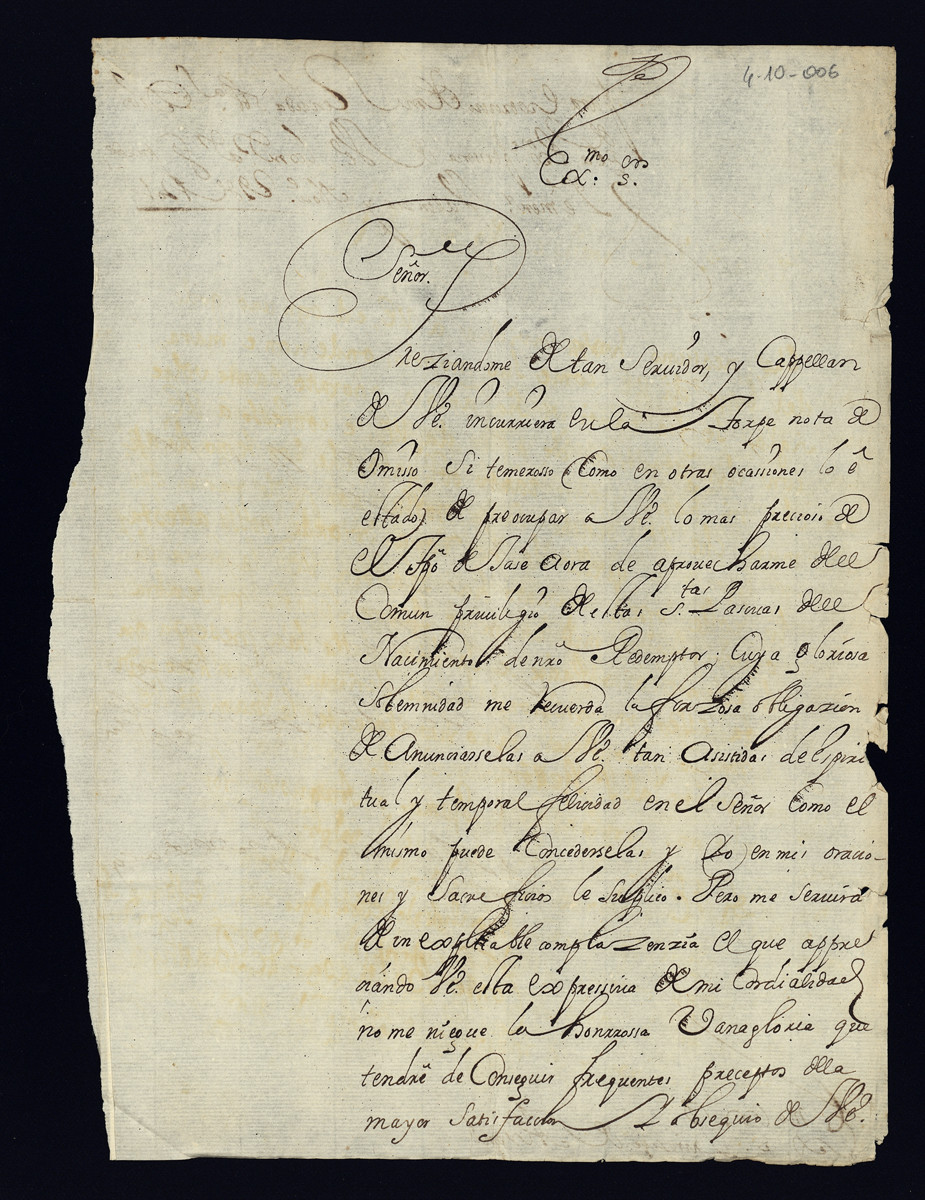 4-10-006
Ex.mo S.or
Señor.
Preziandome de tan Seruidor, y Cappellan
de VE. incurriera en la torpe nota de
Omisso Si temerosso (Como en otras ocassiones lo é
estado) de preocupar a VE. lo mas precioso de
el tpõ dejase aora de aprovecharme del
Comun priuilegio de estas S.tas Pascuas del
Nacimiento de nrõ Redemptor; Cuya gloriosa
solemnidad me recuerda la forzosa obligazion
de Anunciarselas a VE. tan Asistidas de espiri
tual y temporal felicidad en el Señor Como el
mismo puede Concederselas y Yo en mis oracio-
nes y Sacrificios le suplico. Pero me seruirá
de inexplicable complazenzia el que appre
ciando VE. esta expressiua de mi Cordialidad
no me niegue la honrrossa Vanagloria que
tendré de Conseguir frequentes preceptos de la
mayor Satisfaccion y obsequio de VE.